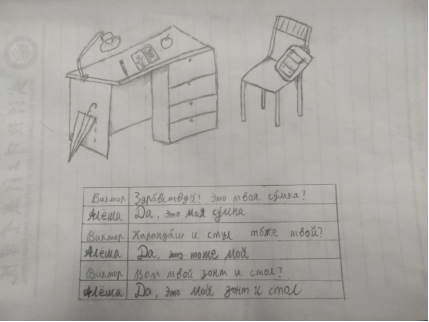 Виктор Здравствуй! Это твоя су́мка?
Алёша Да, это моя сумка
Виктор Каранда́ш и стул то́же твой?
Алёша Да, это тоже мой
Виктор Вот твой зонт и стол?
Алёша Да, это мой зонт и стол